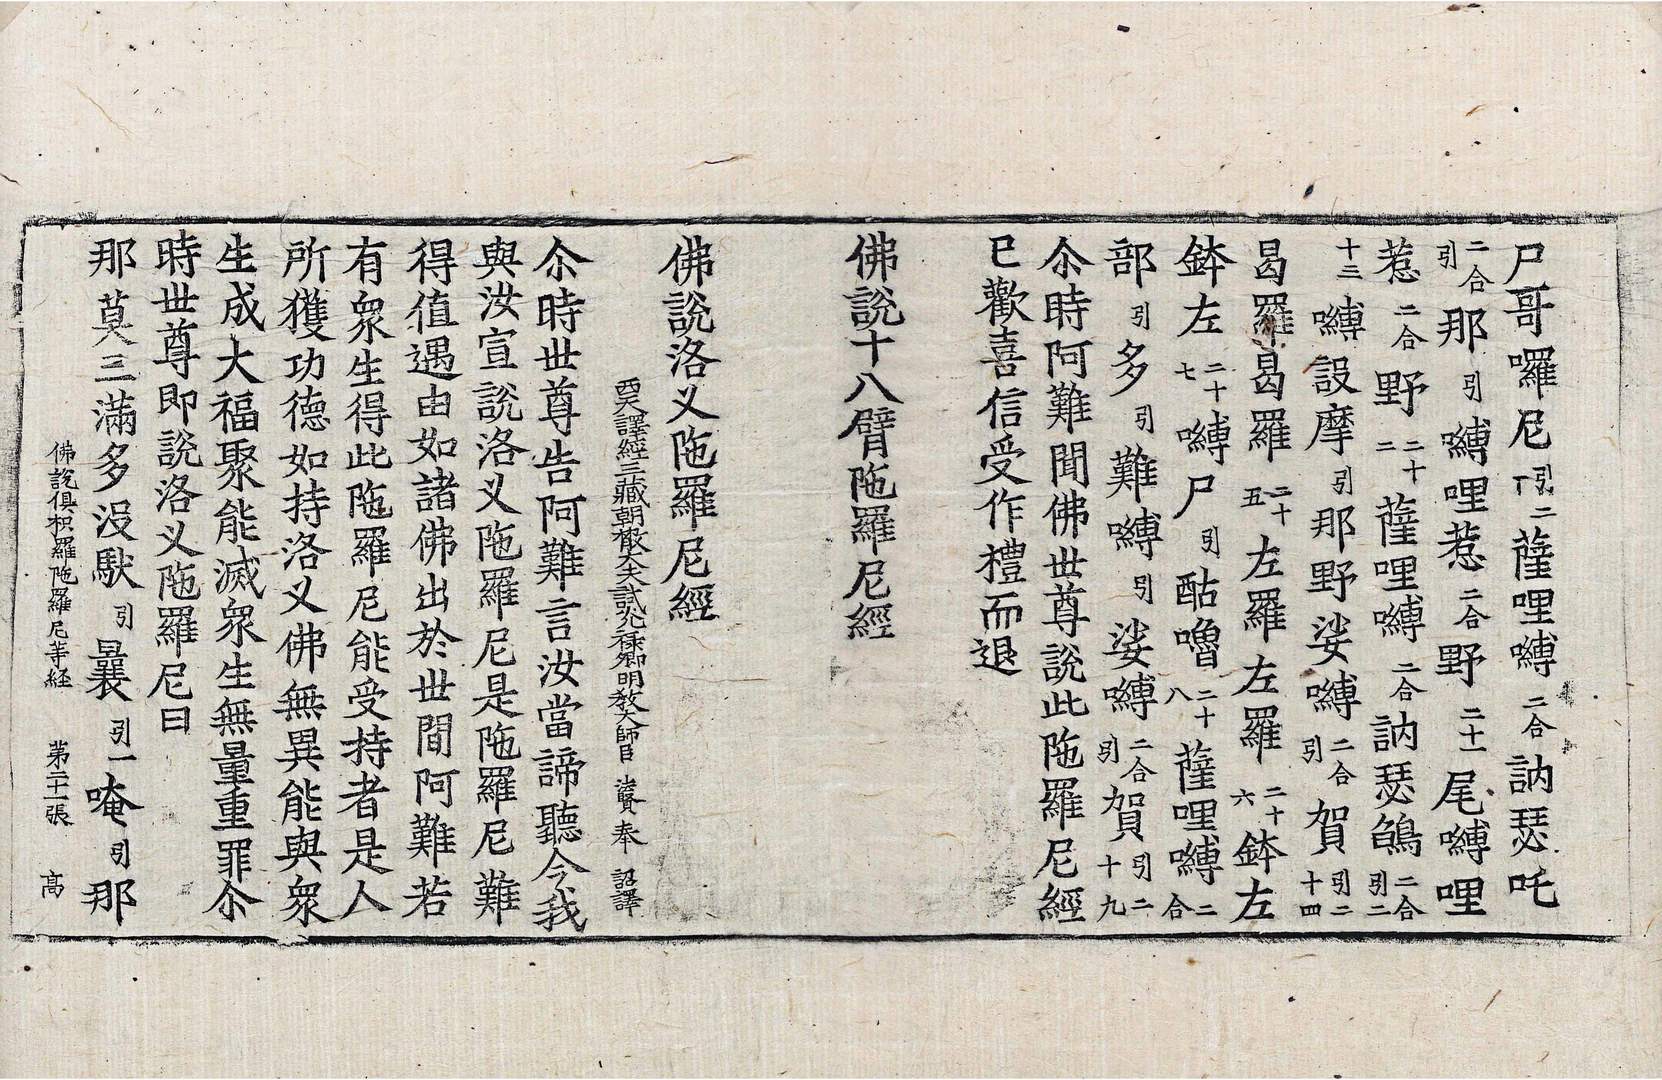 尸哥囉尼引二薩哩嚩二合訥瑟吒
二合引那引嚩哩惹二合野二十一尾嚩哩
惹二合野二十二薩哩嚩二合訥瑟鵮二合引二
十三嚩設摩引那野娑嚩二合引賀引二十四
曷羅曷羅二十五左羅左羅二十六鉢左
鉢左二十七嚩尸引酤嚕二十八薩哩嚩二合
部引多引難嚩引娑嚩二合引賀引二十九
尒時阿難聞佛世尊說此陁羅尼經
已歡喜信受作禮而退
佛說十八臂陁羅尼經
佛說洛叉陁羅尼經
西天譯經三藏朝散大夫試光祿卿明教大師臣法賢奉 詔譯
尒時世尊告阿難言汝當諦聽今我
與汝宣說洛叉陁羅尼是陁羅尼難
得值遇由如諸佛出於世間阿難若
有衆生得此陁羅尼能受持者是人
所獲功德如持洛叉佛無異能與衆
生成大福聚能滅衆生無量重罪尒
時世尊即說洛叉陁羅尼曰
那莫三滿多沒馱引曩引一唵引那
佛說俱枳羅陁羅尼等經 第二十一張 高